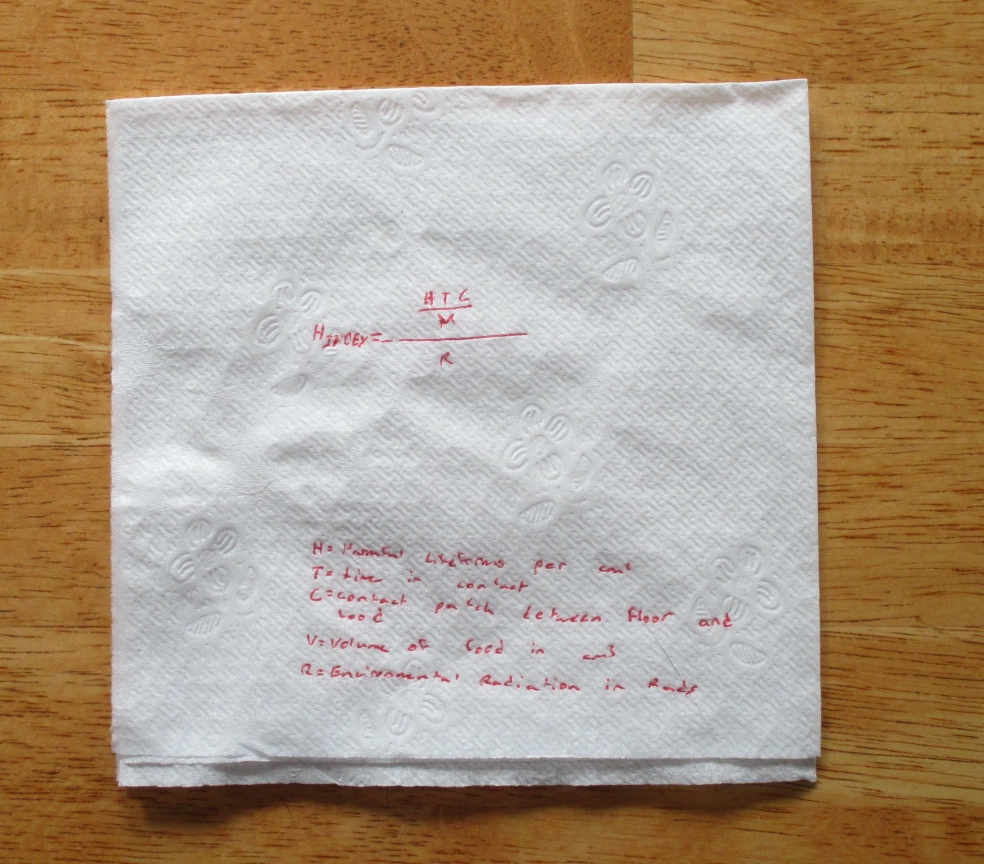 H T C
H INDEX = —
R
H = Harmful Lifeforms per cm²
T = time in contact
C = contact patch between floor and
food
V = Volume of food in cm3
R = Environmental Radiation in Rads